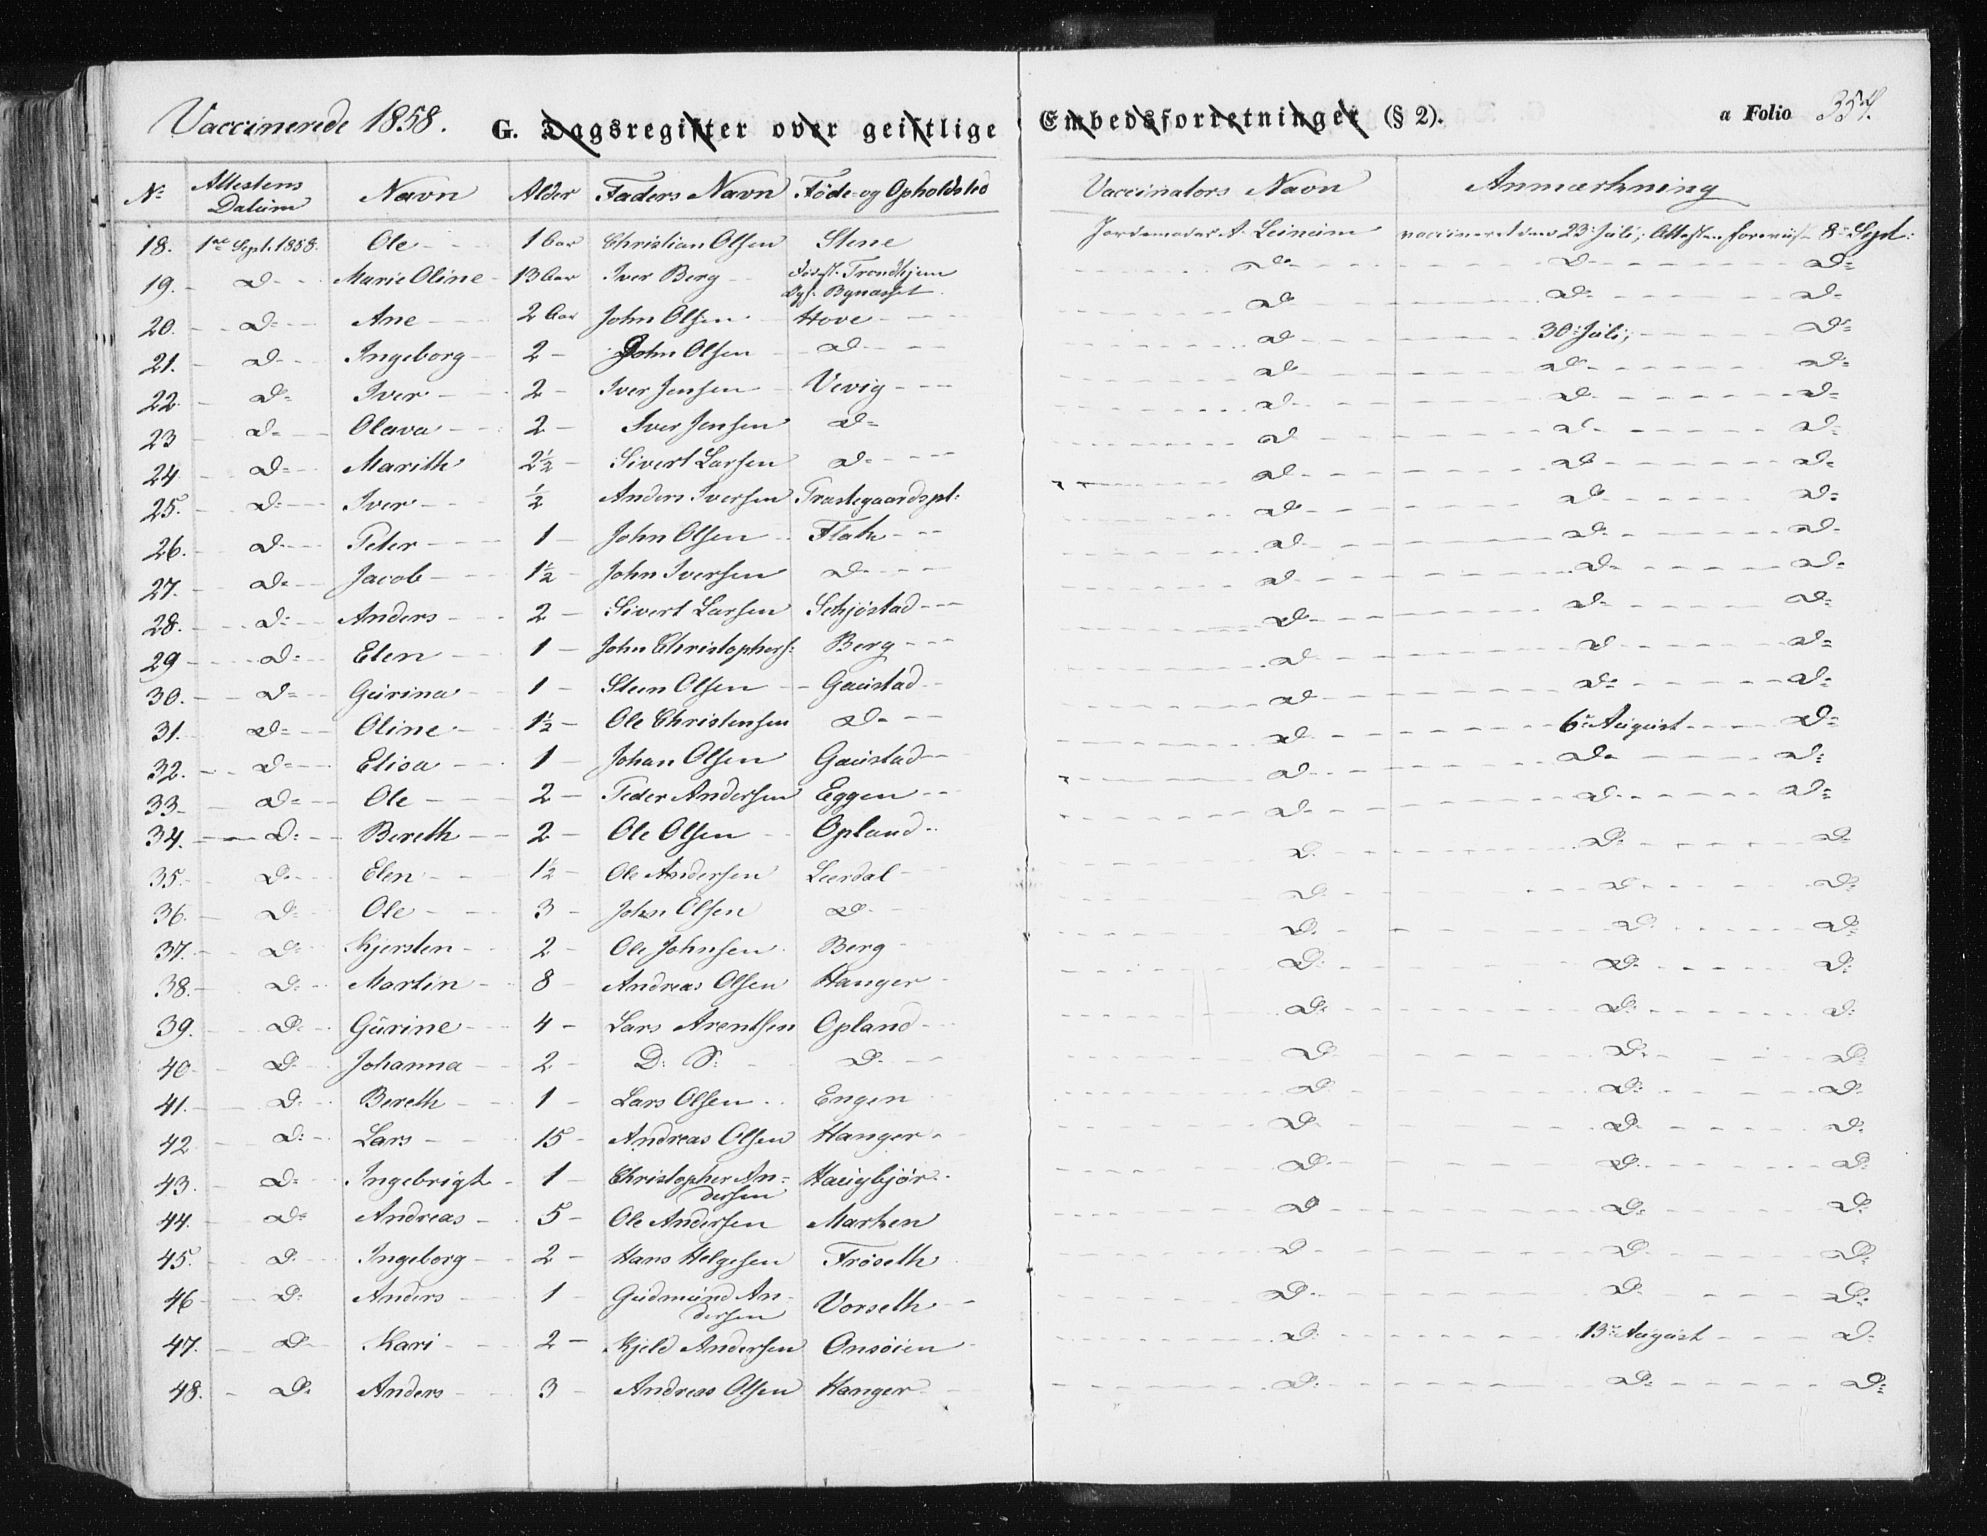 Vaccinerede 1858. G. Dagsregister over geistlige Embedsforretninger (§ 2). a Folio 357.
No Attestens Datum Navn Alder Faders Navn Føde- og Opholdsted Vaccinators Navn Anmærkning
18. 1ste Sept. 1858. Ole 1 Aar Christian Olsen Stene Jordemoder A. Leinum vaccineret den 23de Juli; Attesten foreviist 8de Sept:
19. D Marie Oline 13 Aar Iver Berg Fødest. Trondhjem Opf. Bynæsset Do D D=
20. D= Ane 2 Aar John Olsen Hove Do D= D=
21. D Ingeborg 2 John Olsen D D 30te Juli; D=
22. D= Iver 2 Iver Jensen Vevig D D D=
23 D= Olava 2 Iver Jensen D= D D D=
24. D= Marith 2½ Sivert Larsen D= D D D=
25. D: Iver ½ Anders Iversen Præstegaardspl: D D D=
26. D Peter 1 John Olsen Flath D D D=
27. D= Jacob 1½ John Iversen D D D D=
28. D: Anders 2 Sivert Larsen Schjøstad D D D=
29 D: Elen 1 John Christophers: Berg D D D=
30. D= Gurina 1 Steen Olsen Gaustad D D D=
31. D= Oline 1½ Ole Christensen D= D D= D=
32. D= Elisa 1 Johan Olsen Gaustad D 6te August D=
33. D= Ole 2 Peder Andersen Eggen D D= D:
34. D: Bereth 2 Ole Olsen Opland D D D=
35. D Elen 1½ Ole Andersen Leerdal D. D: D=
36. D Ole 3 John Olsen D D D D=
37. D: Kjersten 2 Ole Johnsen Berg D. D D=
38. D: Martin 8 Andreas Olsen Hanger D: D= D:
39. D: Gurine 4 Lars Arentsen Opland D: D: D:
40 D: Johanna 2 D: S: D D D: D:
41. D: Bereth 1 Lars Olsen Engen D D: D:
42 D: Lars 15 Andreas Olsen Hanger D D: D:
43. D: Ingebrigt 1 Christopher An=
dersen Haugbjør D: D. D:
44. D= Andreas 5 Ole Andersen Marken D D: D:
45. D Ingeborg 2 Hans Helgesen Frøseth D D D:
46 D: Anders 1 Gudmund An-
dersen Vorseth D: D D:
47. D Kari 2 Kjeld Andersen Onsøien D: 13de August D
48. D: Anders 3 Andreas Olsen Hanger D: D: D: